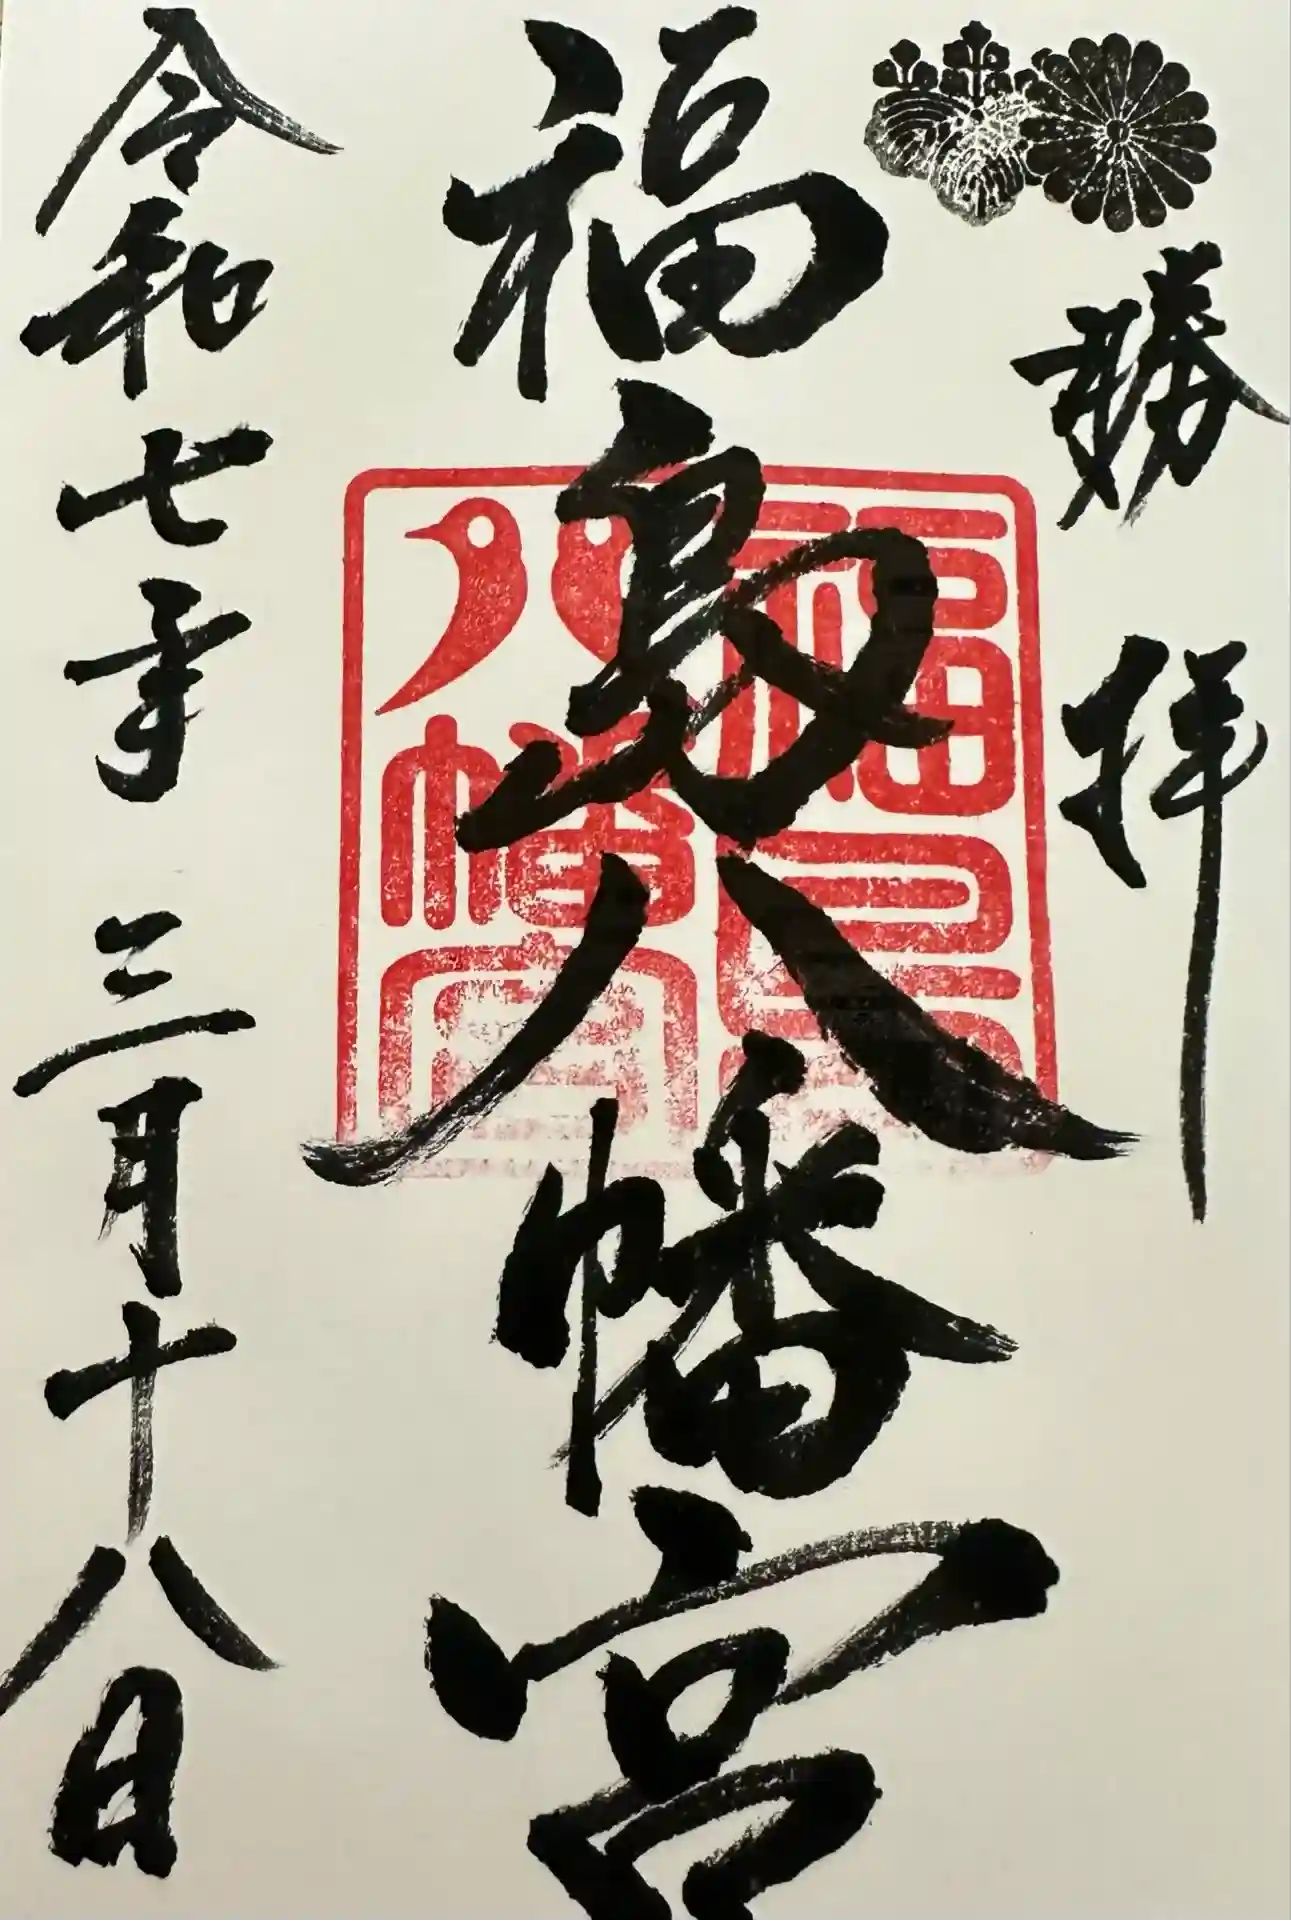 勝拝
福島八幡宮
福島八幡宮
令和七年三月十八日